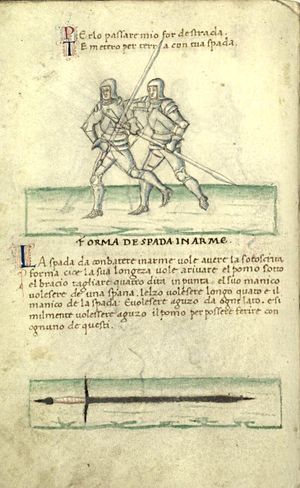 PErlo passare mio for de strada.
TE metero per terra con tua spada.
FORMA DE SPADA IN ARME.
LA spada da conbatere in arme vole avere la sotoscrita
forma cice la sua longeza vole arivare el pomo sotto
el bracio tagliare quatro dita in punta. el suo manico
vole sere de una spana. Lelzo vole sere longo quato e il
manico de la spada: E vole sere aguzo da ogne lato. e si
milmente vole ssere aguzo il pomo per possere ferire con
ognuno de questi.